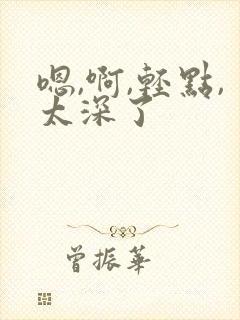 嗯,啊,輕點,
太深了
曾振華